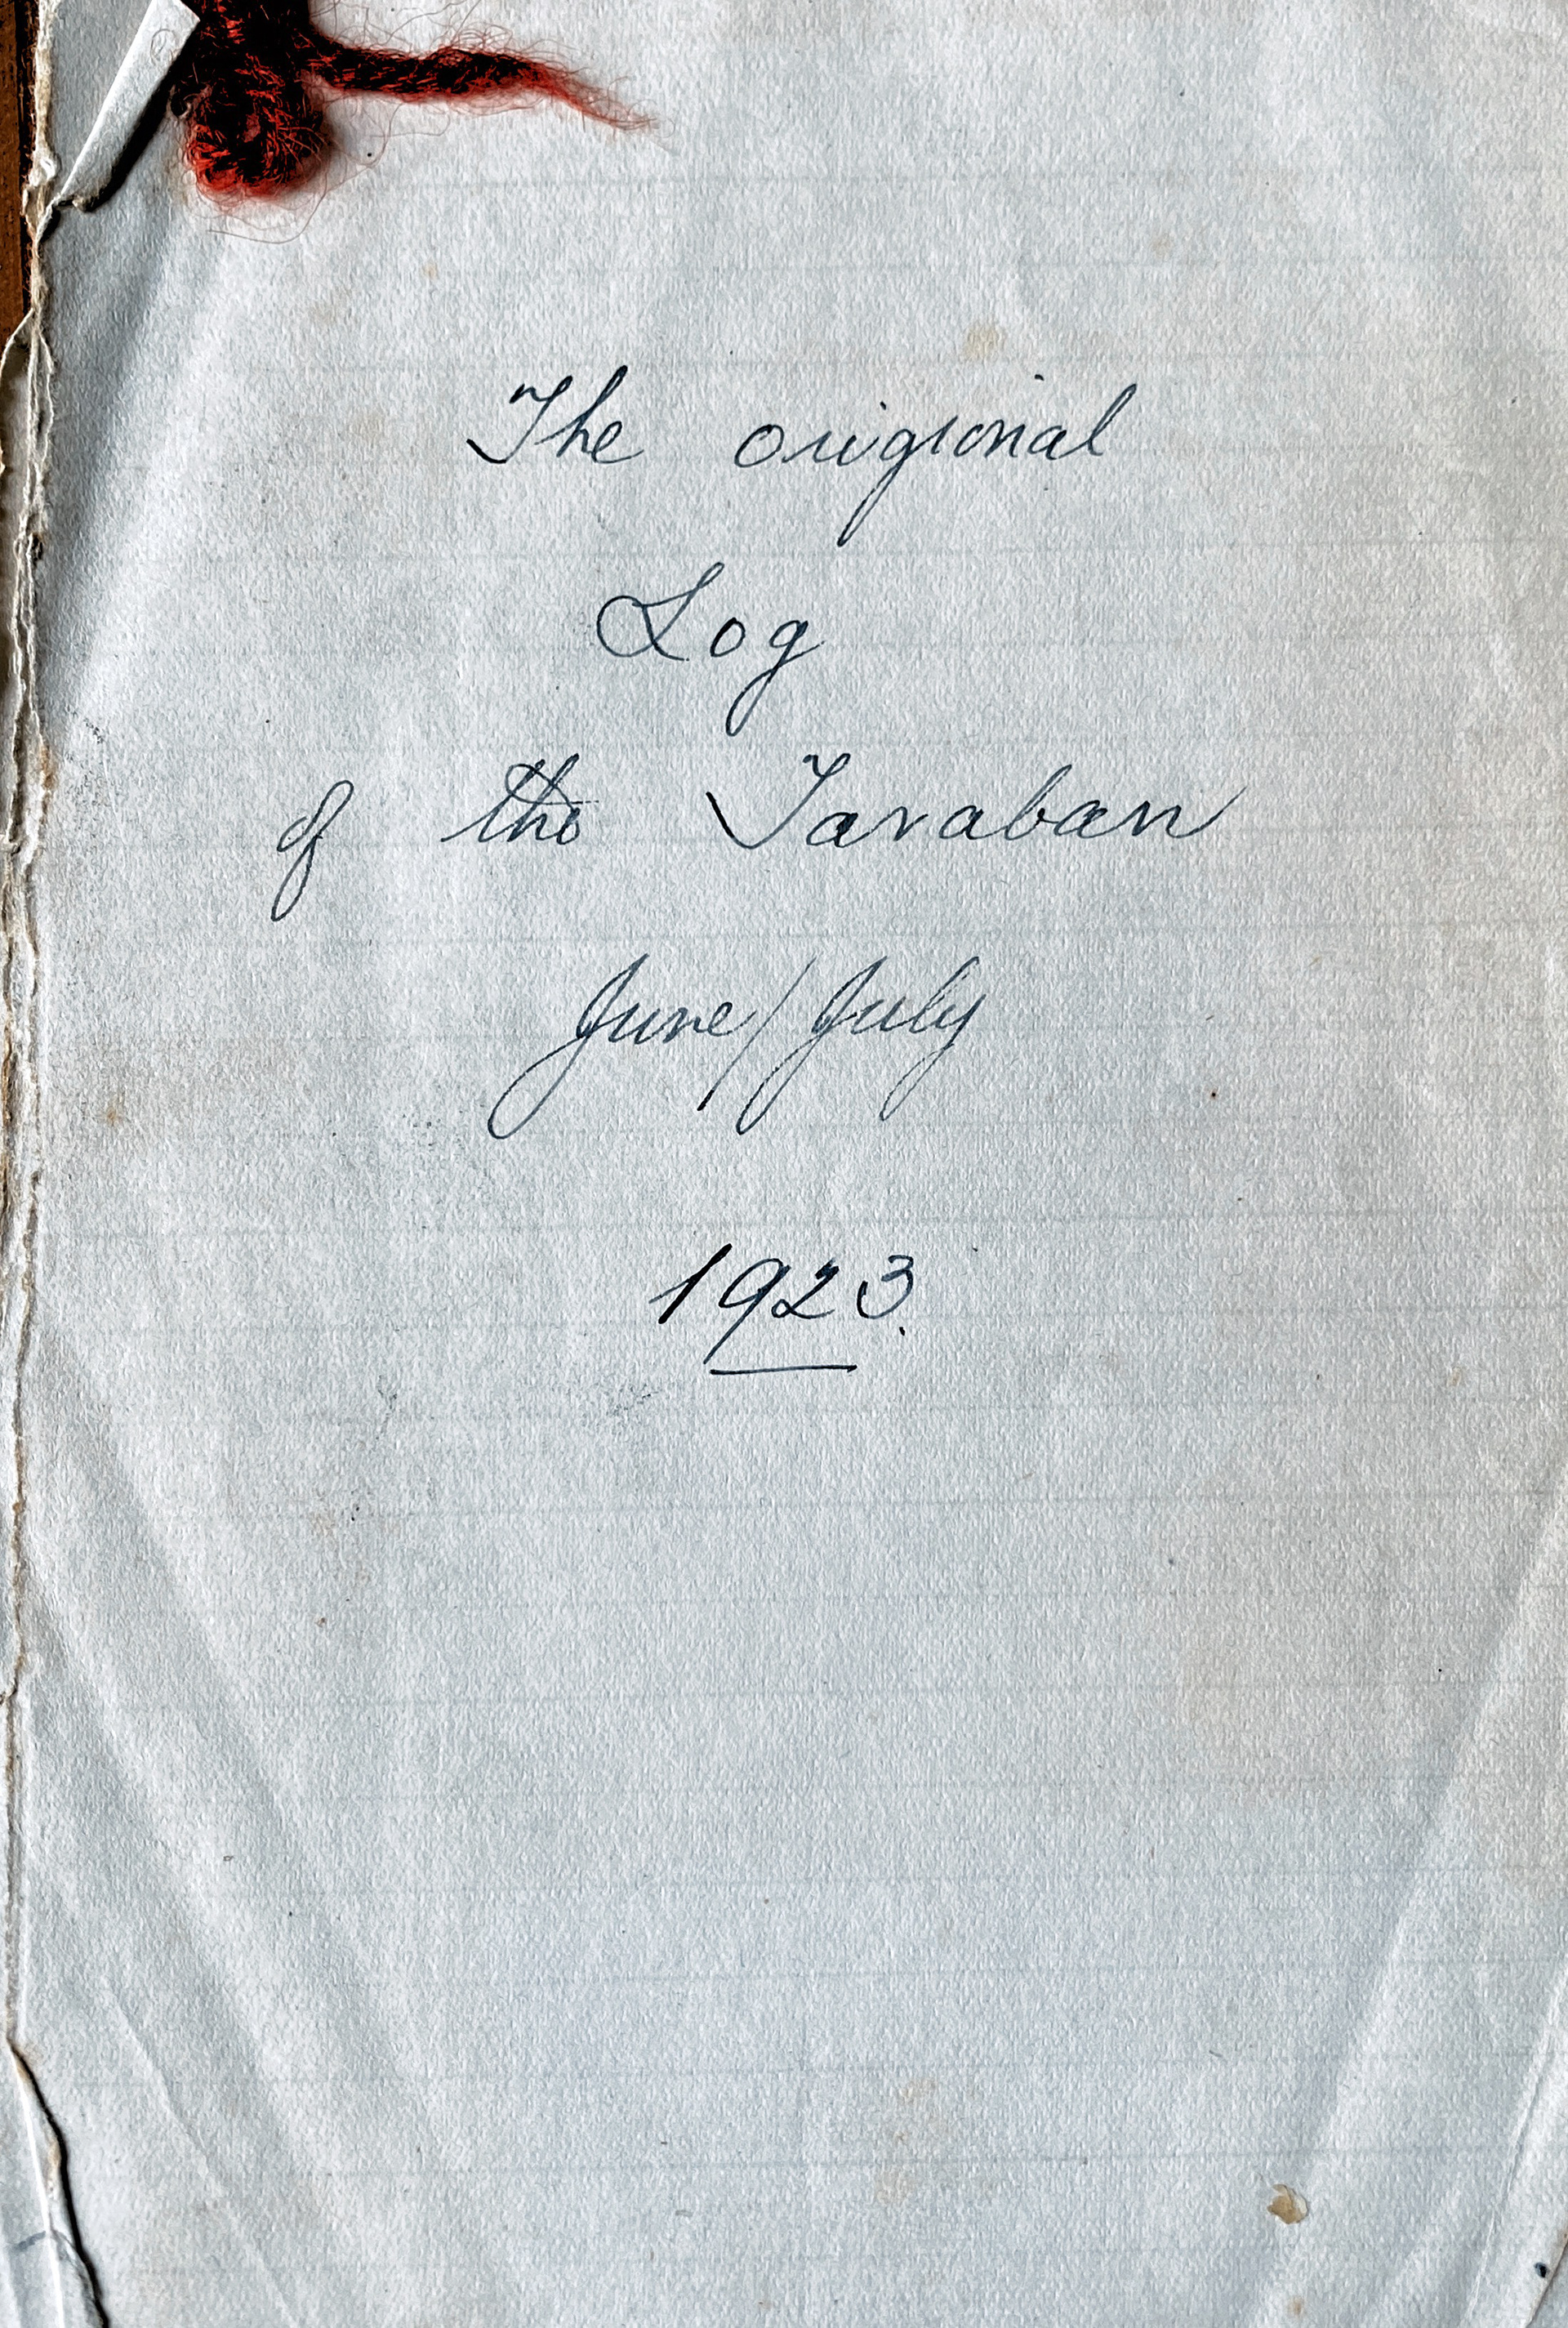 The origional
Log
of the Taraban
June/July
1923.